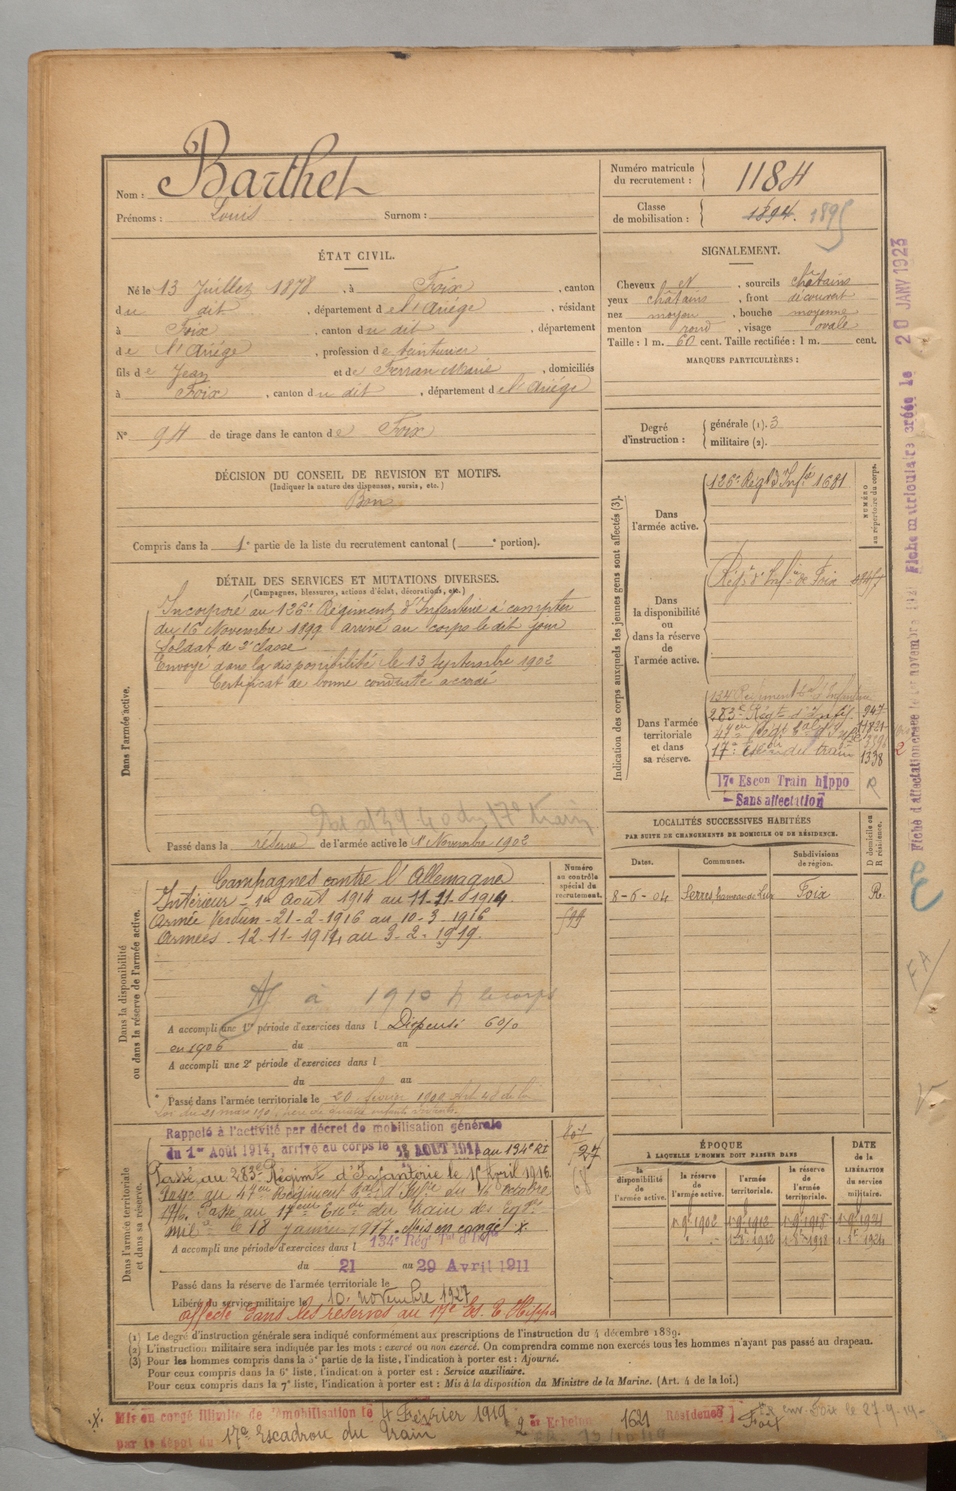 Nom : Barthet
Prénoms : Louis Surnom :
Numéro matricule du recrutement : 1184
Classe de mobilisation : 1894. 1895
ÉTAT CIVIL.
Né le 13 Juillet 1878, à Foix, canton
du dit, département de l'Ariége, résidant
à Foix, canton du dit, département
de l'Ariége, profession de teinturier
fils de Jean et de Ferran Marie, domiciliés
à Foix, canton du dit, département de l'Ariége
N° 94 de tirage dans le canton de Foix
DÉCISION DU CONSEIL DE REVISION ET MOTIFS.
(Indiquer la nature des dispenses, sursis, etc.)
Bon
Compris dans la 1e partie de la liste du recrutement cantonal ( e portion).
DÉTAIL DES SERVICES ET MUTATIONS DIVERSES.
(Campagnes, blessures, actions d'éclat, décorations, etc.)
Dans l'armée active.
Incorporé au 126e Régiment d'Infanterie à compter
du 16 Novembre 1899 arrivé au corps le dit jour
Soldat de 2e classe
Envoyé dans la disponibilité le 13 Septembre 1902
Certificat de bonne conduite accordé
Passé dans la réserve de l'armée active le 1er Novembre 1902
Dans la disponibilité ou dans la réserve de l'armée active.
Numéro au contrôle spécial du recrutement.
Campagnes contre l'Allemagne
Intérieur - 1er Août 1914 au 11-11-1914
Armée Verdun - 21-2-1916 au 10-3-1916
Armées - 12-11-1914 au 3-2-1919.
à 1910 le corps
A accompli une 1re période d'exercices dans l Dispensé 6%
en 1906 du au
A accompli une 2e période d'exercices dans l
du au
Passé dans l'armée territoriale le 20 février 1909 Art 48 de la
Loi du 21 mars 1905, père de quatre enfants vivants.
Dans l'armée territoriale et dans sa réserve.
Rappelé à l'activité par décret de mobilisation générale
du 1er Août 1914, arrivé au corps le AOUT 1914 au 134e RI
Passé au 283e Régiment d'Infanterie le 1er Avril 1916
Passé au 47e Régiment d'Infie du 16 octobre
1916. Passé au 17eme Eon du train des Eqges
milres le 18 janvier 1917. Mis en congé x
A accompli une période d'exercices dans l 134e Régt Tal d'Infie
du 21 au 29 Avril 1911
Passé dans la réserve de l'armée territoriale le
Libéré du service militaire le 10 novembre 1927
affecté dans les réserves au 17e Es. T. Hippo
SIGNALEMENT.
Cheveux N, sourcils châtains
yeux châtains, front découvert
nez moyen, bouche moyenne
menton rond, visage ovale
Taille : 1 m. 60 cent. Taille rectifiée : 1 m. cent.
MARQUES PARTICULIÈRES :
Degré d'instruction : générale (1). 3
militaire (2).
Indication des corps auxquels les jeunes gens sont affectés (3).
NUMÉRO au répertoire du corps.
Dans l'armée active.
126e Régt d'Infie 1681
Dans la disponibilité ou dans la réserve de l'armée active.
Régt d'Infie de Foix
Dans l'armée territoriale et dans sa réserve.
134 Régiment Tal d'Infanterie
283e Régt d'Infie 947
17e Eson du train 1338
17e Escon Train hippo R
Sans affectation
LOCALITÉS SUCCESSIVES HABITÉES
PAR SUITE DE CHANGEMENTS DE DOMICILE OU DE RÉSIDENCE.
D domicile ou R résidence.
Dates. Communes. Subdivisions de région.
8-6-04 Serres, Foix R.
ÉPOQUE
A LAQUELLE L'HOMME DOIT PASSER DANS
DATE de la LIBÉRATION du service militaire.
la disponibilité de l'armée active. la réserve de l'armée active. l'armée territoriale. la réserve de l'armée territoriale.
1-9e 1902 1-9e 1912 1-9e 1918 1-9e 1924
20 JANV 1923
Fiche matriculaire créée le
(1) Le degré d'instruction générale sera indiqué conformément aux prescriptions de l'instruction du 4 décembre 1889.
(2) L'instruction militaire sera indiquée par les mots : exercé ou non exercé. On comprendra comme non exercés tous les hommes n'ayant pas passé au drapeau.
(3) Pour les hommes compris dans la 5e partie de la liste, l'indication à porter est : Ajourné.
Pour ceux compris dans la 6e liste, l'indication à porter est : Service auxiliaire.
Pour ceux compris dans la 7e liste, l'indication à porter est : Mis à la disposition du Ministre de la Marine. (Art. 4 de la loi.)
.x. Mis en congé illimité de démobilisation le 4 Février 1919 2e Echelon 1621 Résidence Foix
par le dépôt du 17e Escadron du Train